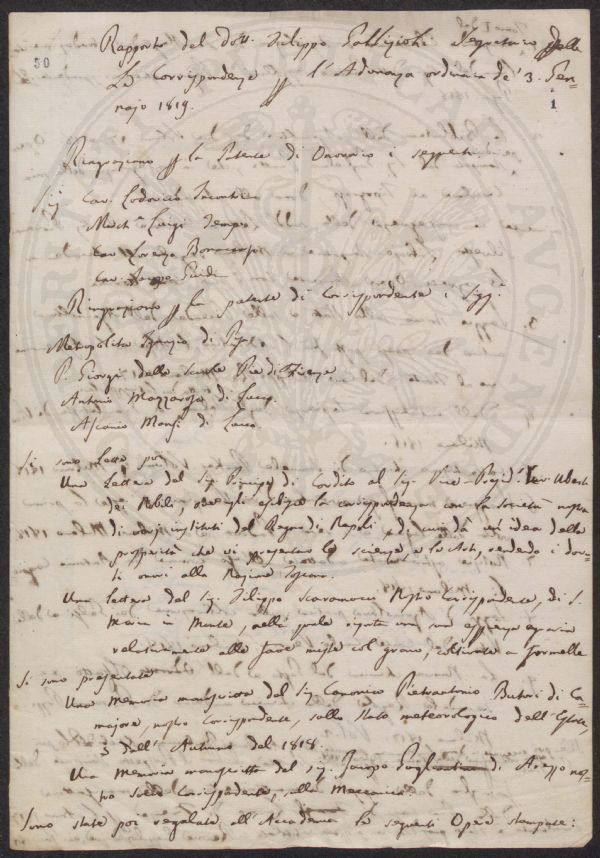 Rapporto del Dott. Filippo Gallizioli Segretario delle
50
Corrispondenze p l'Adunanza ordinaria de' 3. Gen-
najo 1819.
1
Ringraziono p la Patente di Onorario i seguenti
Sig. Cav. Lodovico Incontri
Luigi Tempi
Cav. Lorenzo
Cav.
Ringraziono p la patente di Corrispondente i Sigg.
Metropolita Ignazio di
P. Giorgi delle Scuole Pie di Firenze
Antonio Mazzarosa di Lucca
Ascanio Mansi di Lucca
Si sono lette poi
Una Lettera del Sig. Principe di Cardito al Sig. Vice-Presid. Uberto
dei Nobili, ove egli la corrispondenza con la Società nostra
di varj instituti del Regno di Napoli, e di cui dà un' idea della
prosperità che vi le scienze, e le Arti, rendendo i dovu-
ti onori alla Nazione Toscana.
Una lettera del Sig. Filippo Scaramucci Nostro Corrispondente, di S.
Maria in Monte, nella quale una sua agraria
relativamente alle fave miste col grano, coltivate a formelle
Si sono presentate
Una Memoria manoscritta del Sig. Canonico Pietrantonio Butori di Ca-
majore, nostro Corrispondente, sullo stato meteorologico dell' Estate,
e dell' Autunno del 1818.
Una memoria manoscritta del Sig. di Arezzo nos-
tro Socio Corrispondente, sulla Meccanica
Sono state poi regalate all' Accademia le seguenti Opere stampate: